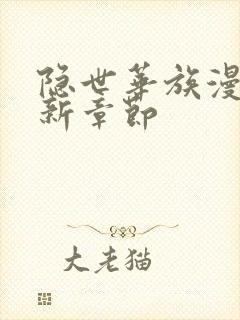 隐世华族漫
新章节
大老猫